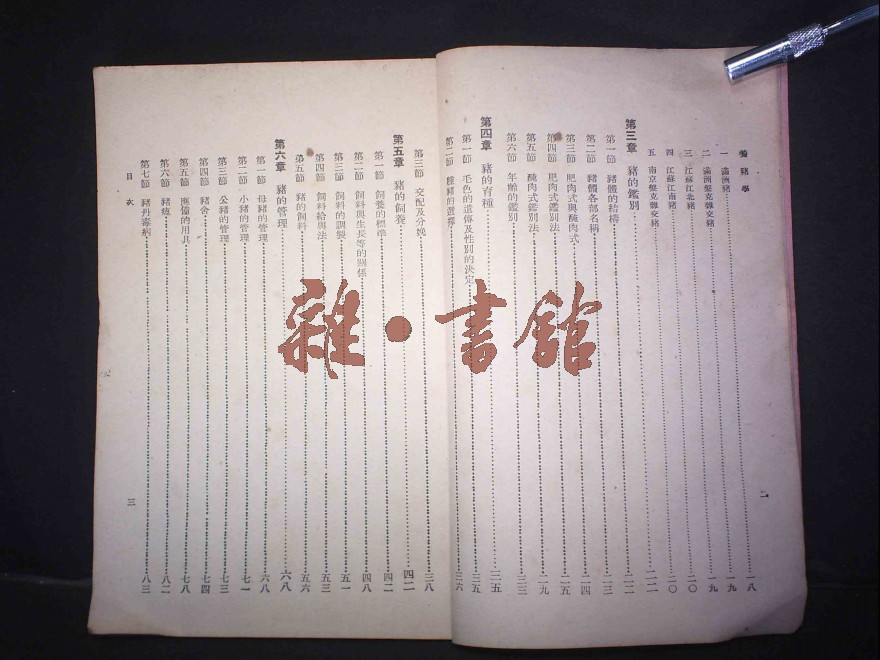 養豬學
一 滿洲豬……一八
二 滿洲盤克雜交豬……一九
三 江蘇江北豬……一九
四 江蘇江南豬……二〇
五 南京盤克雜交豬……二〇
第三章 豬的鑑別……二二
第一節 豬體的結構……二二
第二節 豬體各部名稱……二三
第三節 肥肉式與醃肉式……二四
第四節 肥肉式鑑別法……二五
第五節 醃肉式鑑別法……二九
第六節 年齡的鑑別……三三
第四章 豬的育種……三五
第一節 毛色的遺傳及性別的決定……三五
第二節 種豬的選擇……三六
二
第三節 交配及分娩……三八
第五章 豬的飼養……四二
第一節 飼養的標準……四二
第二節 飼料與生長等的關係……四八
第三節 飼料的調製……五一
第四節 飼料給與法……五三
第五節 豬的飼料……五六
第六章 豬的管理……六八
第一節 母豬的管理……六八
第二節 小豬的管理……七一
第三節 公豬的管理……七三
第四節 豬舍……七四
第五節 應備的用具……七八
第六節 豬瘟……八二
第七節 豬丹毒病……八三
目次
三
雜·書館